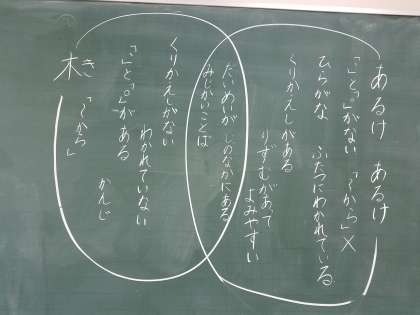 あるけ あるけ
「、」と「。」がない 「〜から」×
ひらがな ふたつにわかれている
くりかえしがある
りずむがあって
よみやすい
だいめいが しのなかにある
みじかいことば
くりかえしがない
わかれていない
「、」と「。」がある
かんじ
「〜から」
木 き